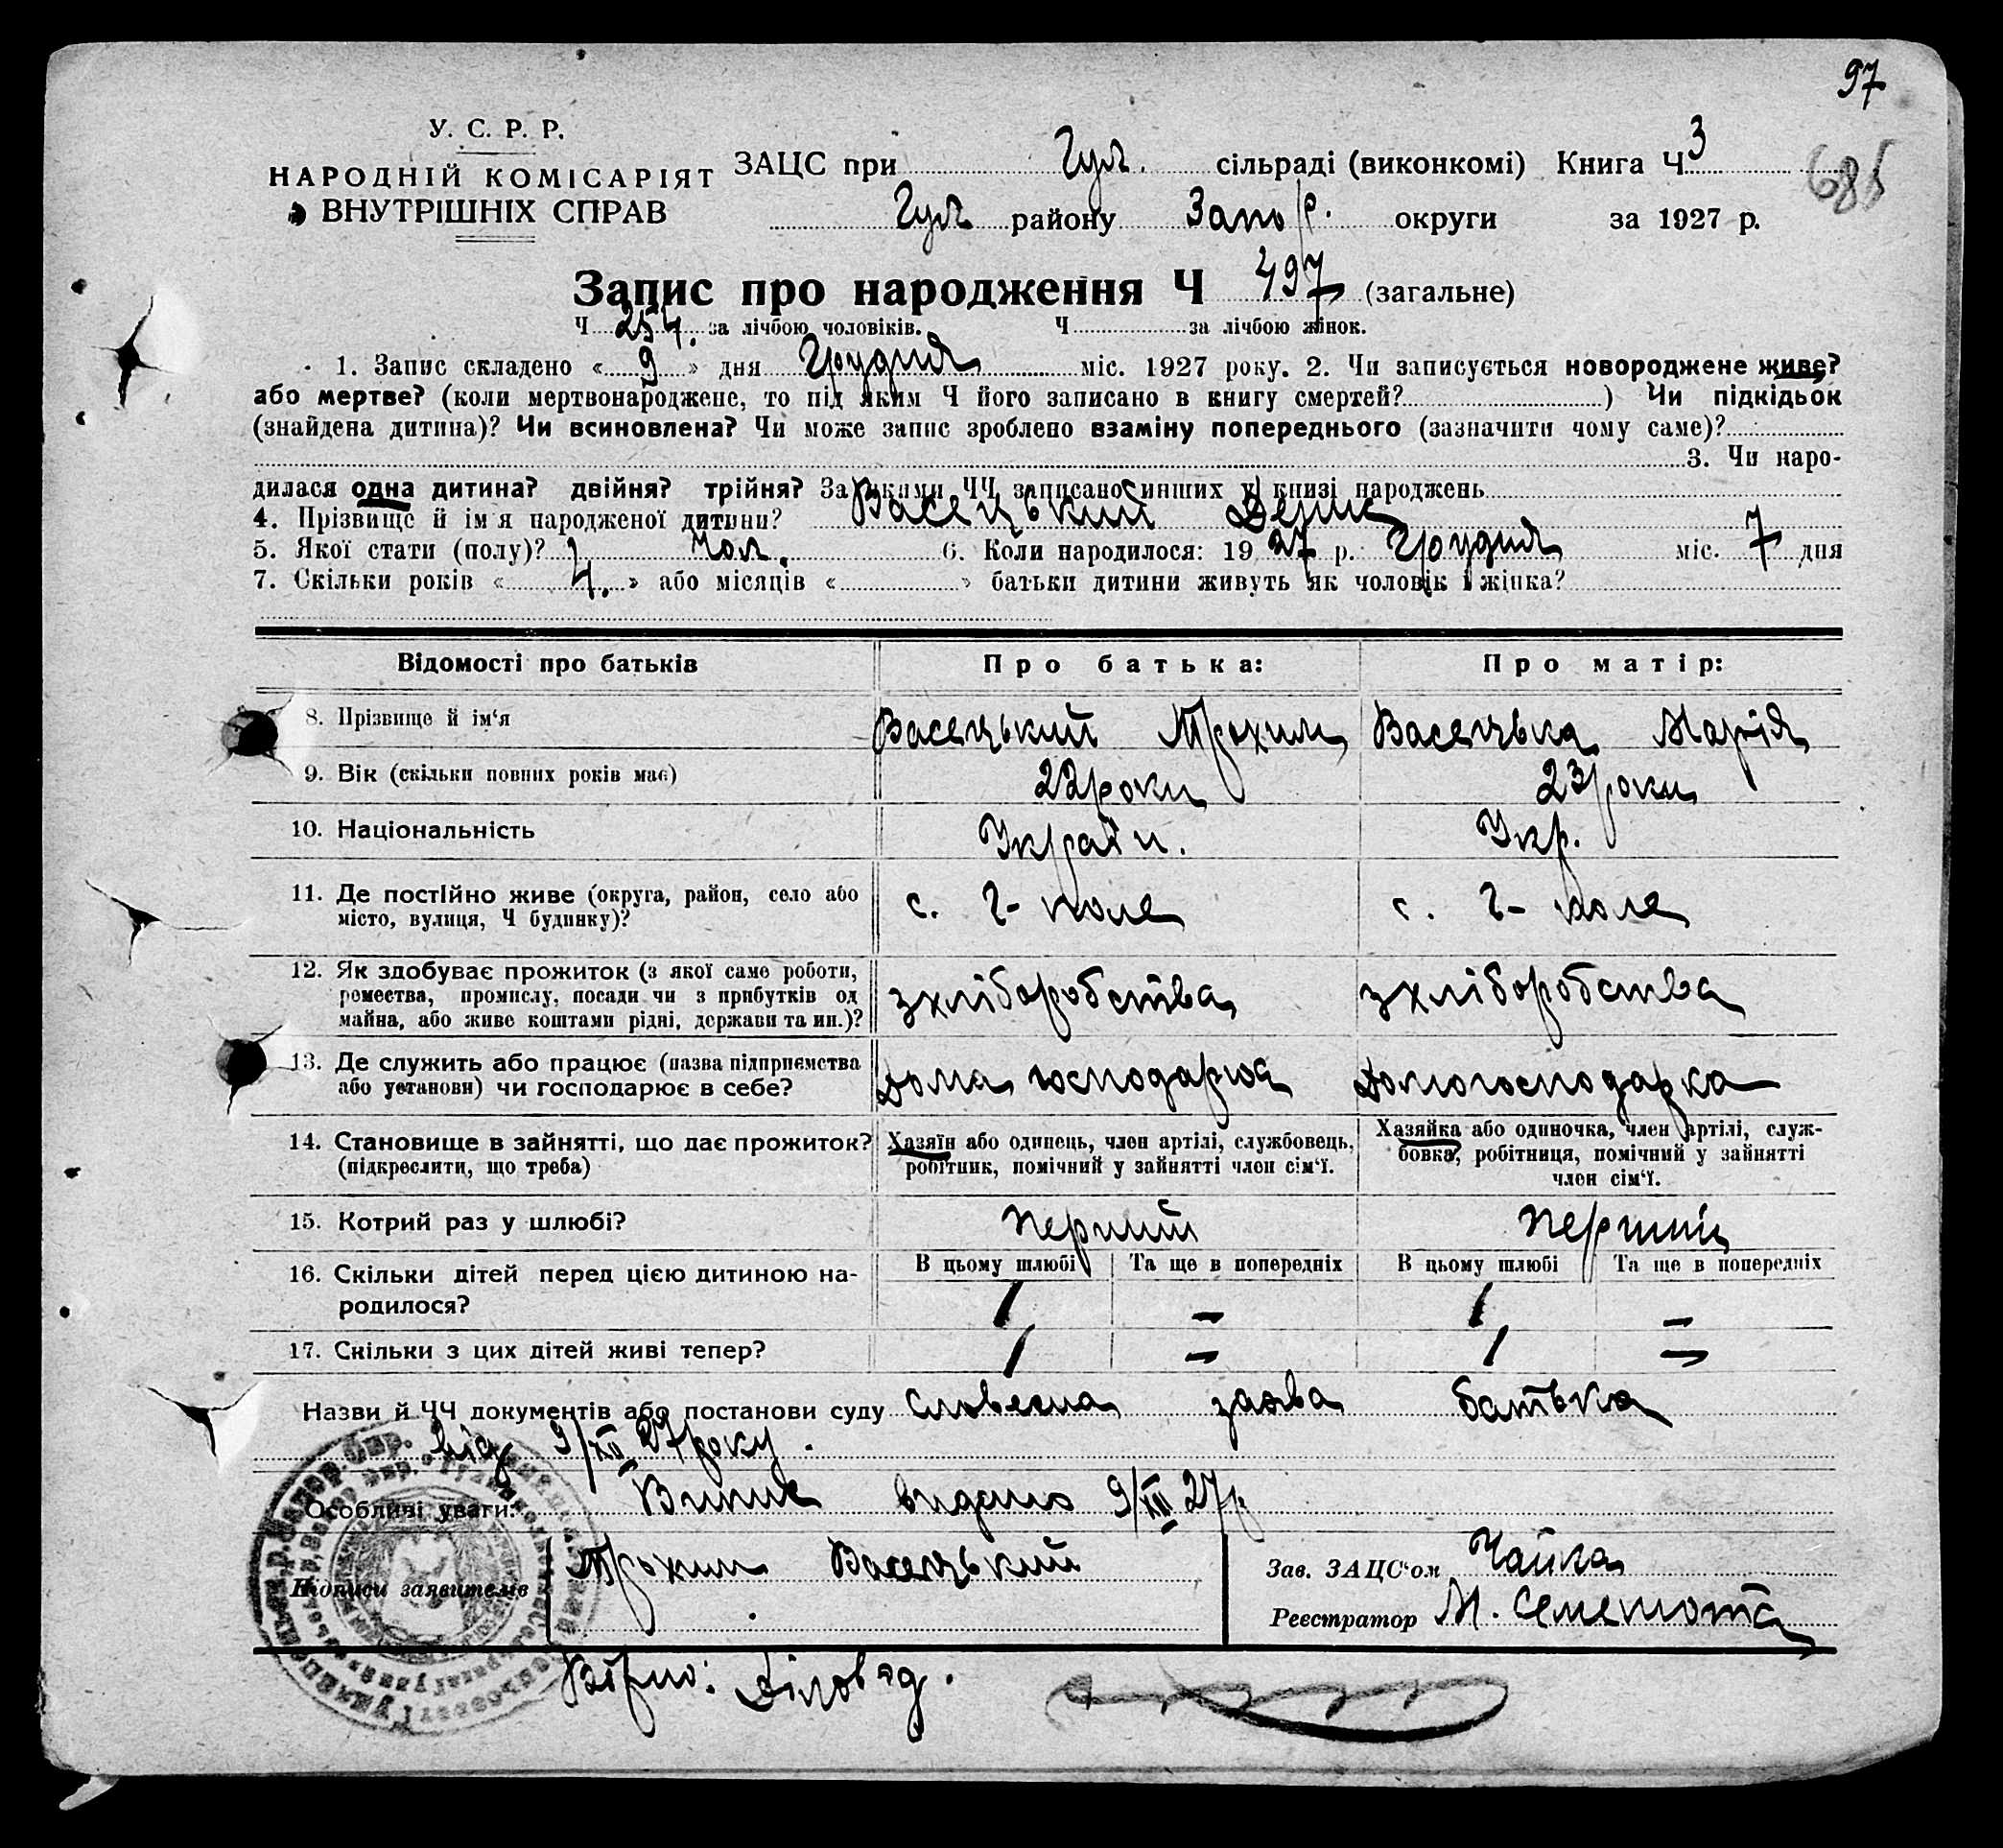 97
У. С. Р. Р.
НАРОДНІЙ КОМІСАРІЯТ
ВНУТРІШНІХ СПРАВ
ЗАЦС при Гул. сільраді (виконкомі) Книга Ч 3
Гул районy Запор. округи за 1927 р.
Запис про народження Ч 497 (загальне)
Ч 254. за лічбою чоловіків. Ч за лічбою жінок.
1. Запис складено « 9 » дня Грудня міс. 1927 року. 2. Чи записується новороджене живе?
або мертве? (коли мертвонароджене, то під яким Ч його записано в книгу смертей? ) Чи підкідьок
(знайдена дитина)? Чи всиновлена? Чи може запис зроблено взаміну попереднього (зазначити чому саме)?
3. Чи наро-
дилася одна дитина? двійня? трійня? За якими ЧЧ записано инших у книзі народжень
4. Прізвище й ім'я народженої дитини? Васецький Денис
5. Якої стати (полу)? чол. 6. Коли народилося: 1927 р. Грудня міс. 7 дня
7. Скільки років « 4. » або місяців « » батьки дитини живуть як чоловік і жінка?
Відомості про батьків Про батька: Про матір:
8. Прізвище й ім‘я Васецький Трохим Васецька Марія
9. Вік (скільки повних років має) 22 роки 23 роки
10. Національність Україн. Укр.
11. Де постійно живе (округа, район, село або
місто, вулиця, Ч будинку)? с. Г- поле с. Г- поле
12. Як здобуває прожиток (з якої саме роботи,
ремества, промислу, посади чи з прибутків од
майна, або живе коштами рідні, держави та ин.)? зхліборобства зхліборобства
13. Де служить або працює (назва підприємства
або установи) чи господарює в себе? Дома господарює Домогосподарка
14. Становище в зайнятті, що дає прожиток?
(підкреслити, що треба)
Хазяїн або одинець, член артілі, службовець,
робітник, помічний у зайнятті член сім‘ї.
Хазяйка або одиночка, член артілі, служ-
бовка, робітниця, помічний у зайнятті
член сім‘ї.
15. Котрий раз у шлюбі? перший перший
16. Скільки дітей перед цією дитиною на-
родилося?
В цьому шлюбі Та ще в попередніх В цьому шлюбі Та ще в попередніх
1 – 1 –
17. Скільки з цих дітей живі тепер? 1 – 1 –
Назви й ЧЧ документів або постанови суду словесна заява батька
від 9/XII 27 року.
Особливі уваги: Випис видано 9/XII 27р
Підписи заявителів Трохим Васецький
Зав. ЗАЦС‘ом Чайка
Реєстратор М.
Вірно: Діловод.